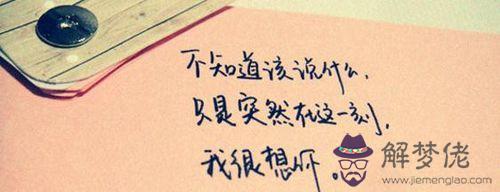 不知道该说什么,
只是突然在这一刻,
我很想你。
解梦佬
www.jiemenglao.com